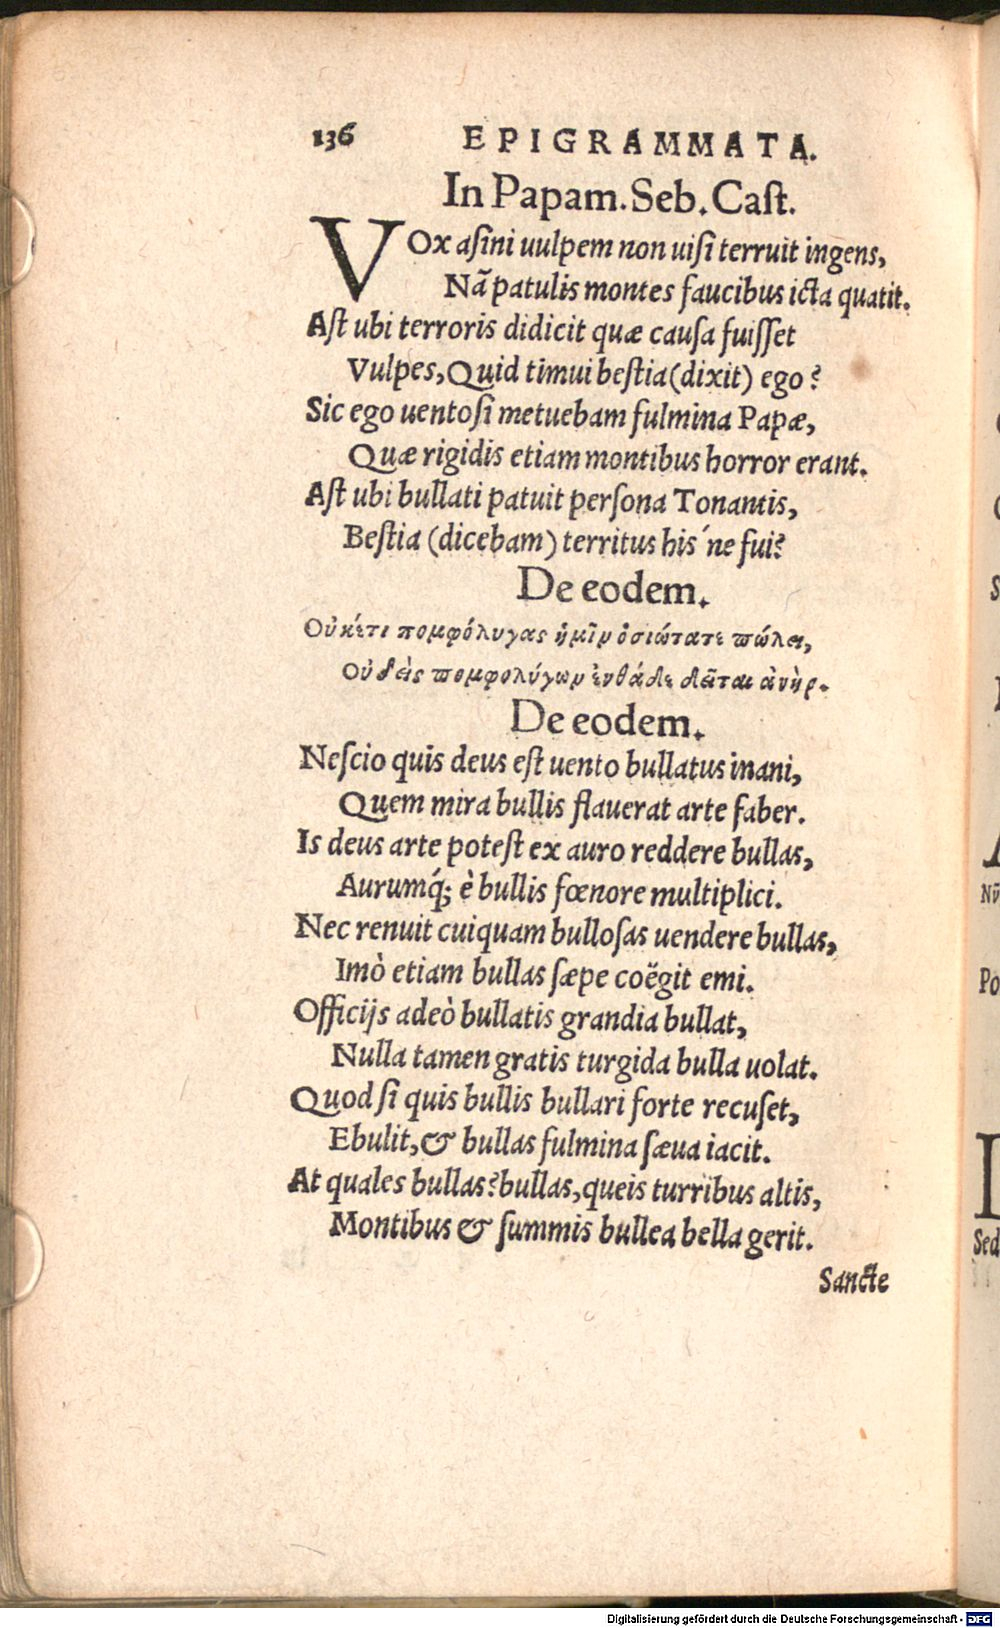 136 EPIGRAMMATA.
In Papam. Seb. Cast.
VOx asini uulpem non uisi terruit ingens,
Nã patulis montes faucibus icta quatit.
Aſt ubi terroris didicit quæ cauſa fuiſſet
Vulpes, Quid timui beſtia (dixit) ego?
Sic ego uentoſi metuebam fulmina Papæ,
Quæ rigidis etiam montibus horror erant.
Aſt ubi bullati patuit perſona Tonantis,
Beſtia (dicebam) territus his'ne fui?
De eodem.
Οὐκέτι πομφόλυγας ἡμῖν ὁσιώτατε πώλει,
Οὐδεὶς πομφολύγων ἐνθάδε δεῖται ἀνήρ.
De eodem.
Neſcio quis deus eſt uento bullatus inani,
Quem mira bullis flauerat arte faber.
Is deus arte poteſt ex auro reddere bullas,
Aurumq́; è bullis fœnore multiplici.
Nec renuit cuiquam bulloſas uendere bullas,
Imò etiam bullas ſæpe coëgit emi.
Officijs adeò bullatis grandia bullat,
Nulla tamen gratis turgida bulla uolat.
Quod ſi quis bullis bullari forte recuſet,
Ebulit, & bullas fulmina ſæua iacit.
At quales bullas? bullas, queis turribus altis,
Montibus & ſummis bullea bella gerit.
Sancte
Nũ
Po
Sed
Digitalisierung gefördert durch die Deutsche Forschungsgemeinschaft - DFG